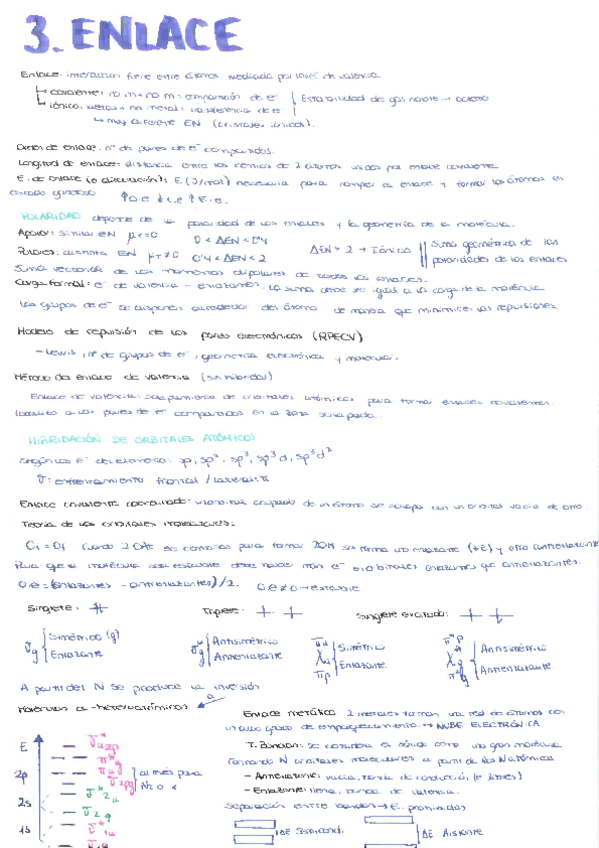 3. ENLACE
Enlace: interacción fuerte entre átomos mediada por la e⁻ de valencia
covalente: no m + no m: compartición de e⁻ Estabilidad de gas noble → octeto
iónico: metal + no metal: transferencia de e⁻
muy diferente EN (cristales iónicos).
Orden de enlace: nº de pares de e⁻ compartidos.
Longitud de enlace: distancia entre los centros de 2 átomos unidos por enlace covalente
E. de enlace (o disociación): E (J/mol) necesaria para romper el enlace y formar los átomos en
estado gaseoso ↑O.e ↓L.e ↑E.e.
POLARIDAD depende de la polaridad de los enlaces y la geometría de la molécula.
Apolar: similar EN μT=0 0<ΔEN<0'4
Polares: distinta EN μT≠0 0'4<ΔEN<2 ΔEN > 2 → Iónico Suma geométrica de las polaridades de los enlaces
Suma vectorial de los momentos dipolares de todos los enlaces.
Carga formal: e⁻ de valencia - enlazantes. La suma debe ser igual a la carga de la molécula
Los grupos de e⁻ se disponen alrededor del átomo de manera que minimice las repulsiones
Modelo de repulsión de los pares electrónicos (RPECV)
- Lewis, nº de grupos de e⁻, geometría electrónica y molecular.
Método de enlace de valencia (sin híbridos)
Enlace de valencia: solapamiento de orbitales atómicos para formar enlaces covalentes
localizado a los pares de e⁻ compartidos en la zona solapada.
HIBRIDACIÓN DE ORBITALES ATÓMICOS
según los e⁻ del elemento: sp, sp², sp³, sp³d, sp³d²
σ: enfrentamiento frontal / lateral: π
Enlace covalente coordinado: un orbital ocupado de un átomo se solapa con un orbital vacío de otro.
Teoría de los orbitales moleculares:
Cuando 2 OAs se combinan para formar 2OM se forma uno enlazante (+E) y otro antienlazante
Para que la molécula sea estable debe haber más e⁻ en orbitales enlazantes que antienlazantes.
O.e = (enlazantes - antienlazantes)/2. O.e ≠ 0 → estable
Singlete: Triplete: Singlete excitado:
σg Simétrico (g) Enlazante
σ*u Antisimétrico Antienlazante
πu Simétrico Enlazante
Antisimétrico Antienlazante
A partir del N se produce la inversión
Moléculas a - heteroatómicas
Enlace metálico: 2 metales forman una red de átomos con
un alto grado de empaquetamiento → NUBE ELECTRÓNICA
T. Bandas: se considera el sólido como una gran molécula
formando N orbitales moleculares a partir de los N atómicos
- Antienlazante: vacía, banda de conducción, (e⁻ libres)
- Enlazante: llena, banda de valencia.
separación entre bandas → E. prohibidas
E
2p
2s
1s
al revés para N₂ o <
ΔE Semicond.
ΔE Aislante